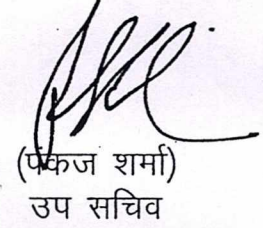 (पंकज शर्मा)
उप सचिव